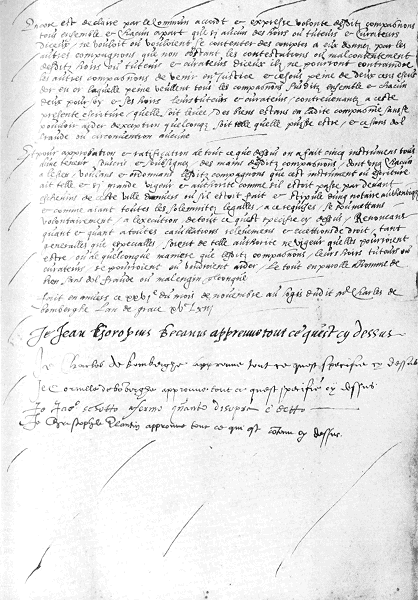 Encore est declaire par le commun accord et expresse volonte desditz compaignons
tous ensemble et chacun apart que si aucun des hoirs ou tuteurs et curateurs
diceux ne vouloit ou vouloient se contenter des comptes a eux donnez par les
autres compaignons que non obstant les contestations ou malcontentement
desditz hoirs ou tuteurs et curateurs diceux ilz ne pourront contraindre
les autres compaignons de venir en Justice et ce sous peine de deux cens escus
dor en or laquelle peine veullent tous les compaignons susditz ensemble et chacun
deux pour soy et ses hoirs leurs tuteurs et curateurs contrevenants a ceste
presente escriture quelle soit levee des biens estans en ladite compaignie sans se
vouloir aider dexception quelconque soit telle quelle puisse estre et ce sans dol
fraude ou circonvention aulcune
Et pour approbation et ratification de tout ce que dessus on a fait cinq instruments tous
dune teneur escrits et soubsignez des mains desditz compaignons dont chacun
a le sien voulans et ordonnans lesditz compaignons que cest instrument ou escriture
ait telle et si grande vigeur et authorite comme sil estoit passe par devant
eschevins de ceste ville danvers ou sil estoit fait et stipule dung notaire authentique
et comme aiant toutes les solemnitez legalles a ce requises se soumettans
volontairement a lexecution de tout ce quest specifie cy dessus Renonceans
quant et quant a toutes cavillations relievemens et exceptions de droit tant
generalles que especialles soient de telle authorite ne vigeur quelles pourroient
estre ou de quelconque maniere que lesditz compaignons leurs hoirs tuteurs ou
curateurs se pourroient ou vouldroient aider Le tout en parolle dhomme de
bien sans dol fraude ou malengin quelconque
Fait en anvers ce XXVIe du mois de novembre au logis dudit Sr Charles de
bomberghe Lan de grace XVc LXIII
Je Jean Goropius Becanus approuve tout ce quest cy dessus
Je Charles de bomberghe approuve tout ce quest specifie cy dessus
Je Cornelis de bomberghe approuve tout ce quest specifie cy dessus
Jo Jaco schotto afermo quanto disopra e detto
Je Christophle Plantin approuve tout ce qui est contenu cy dessus.